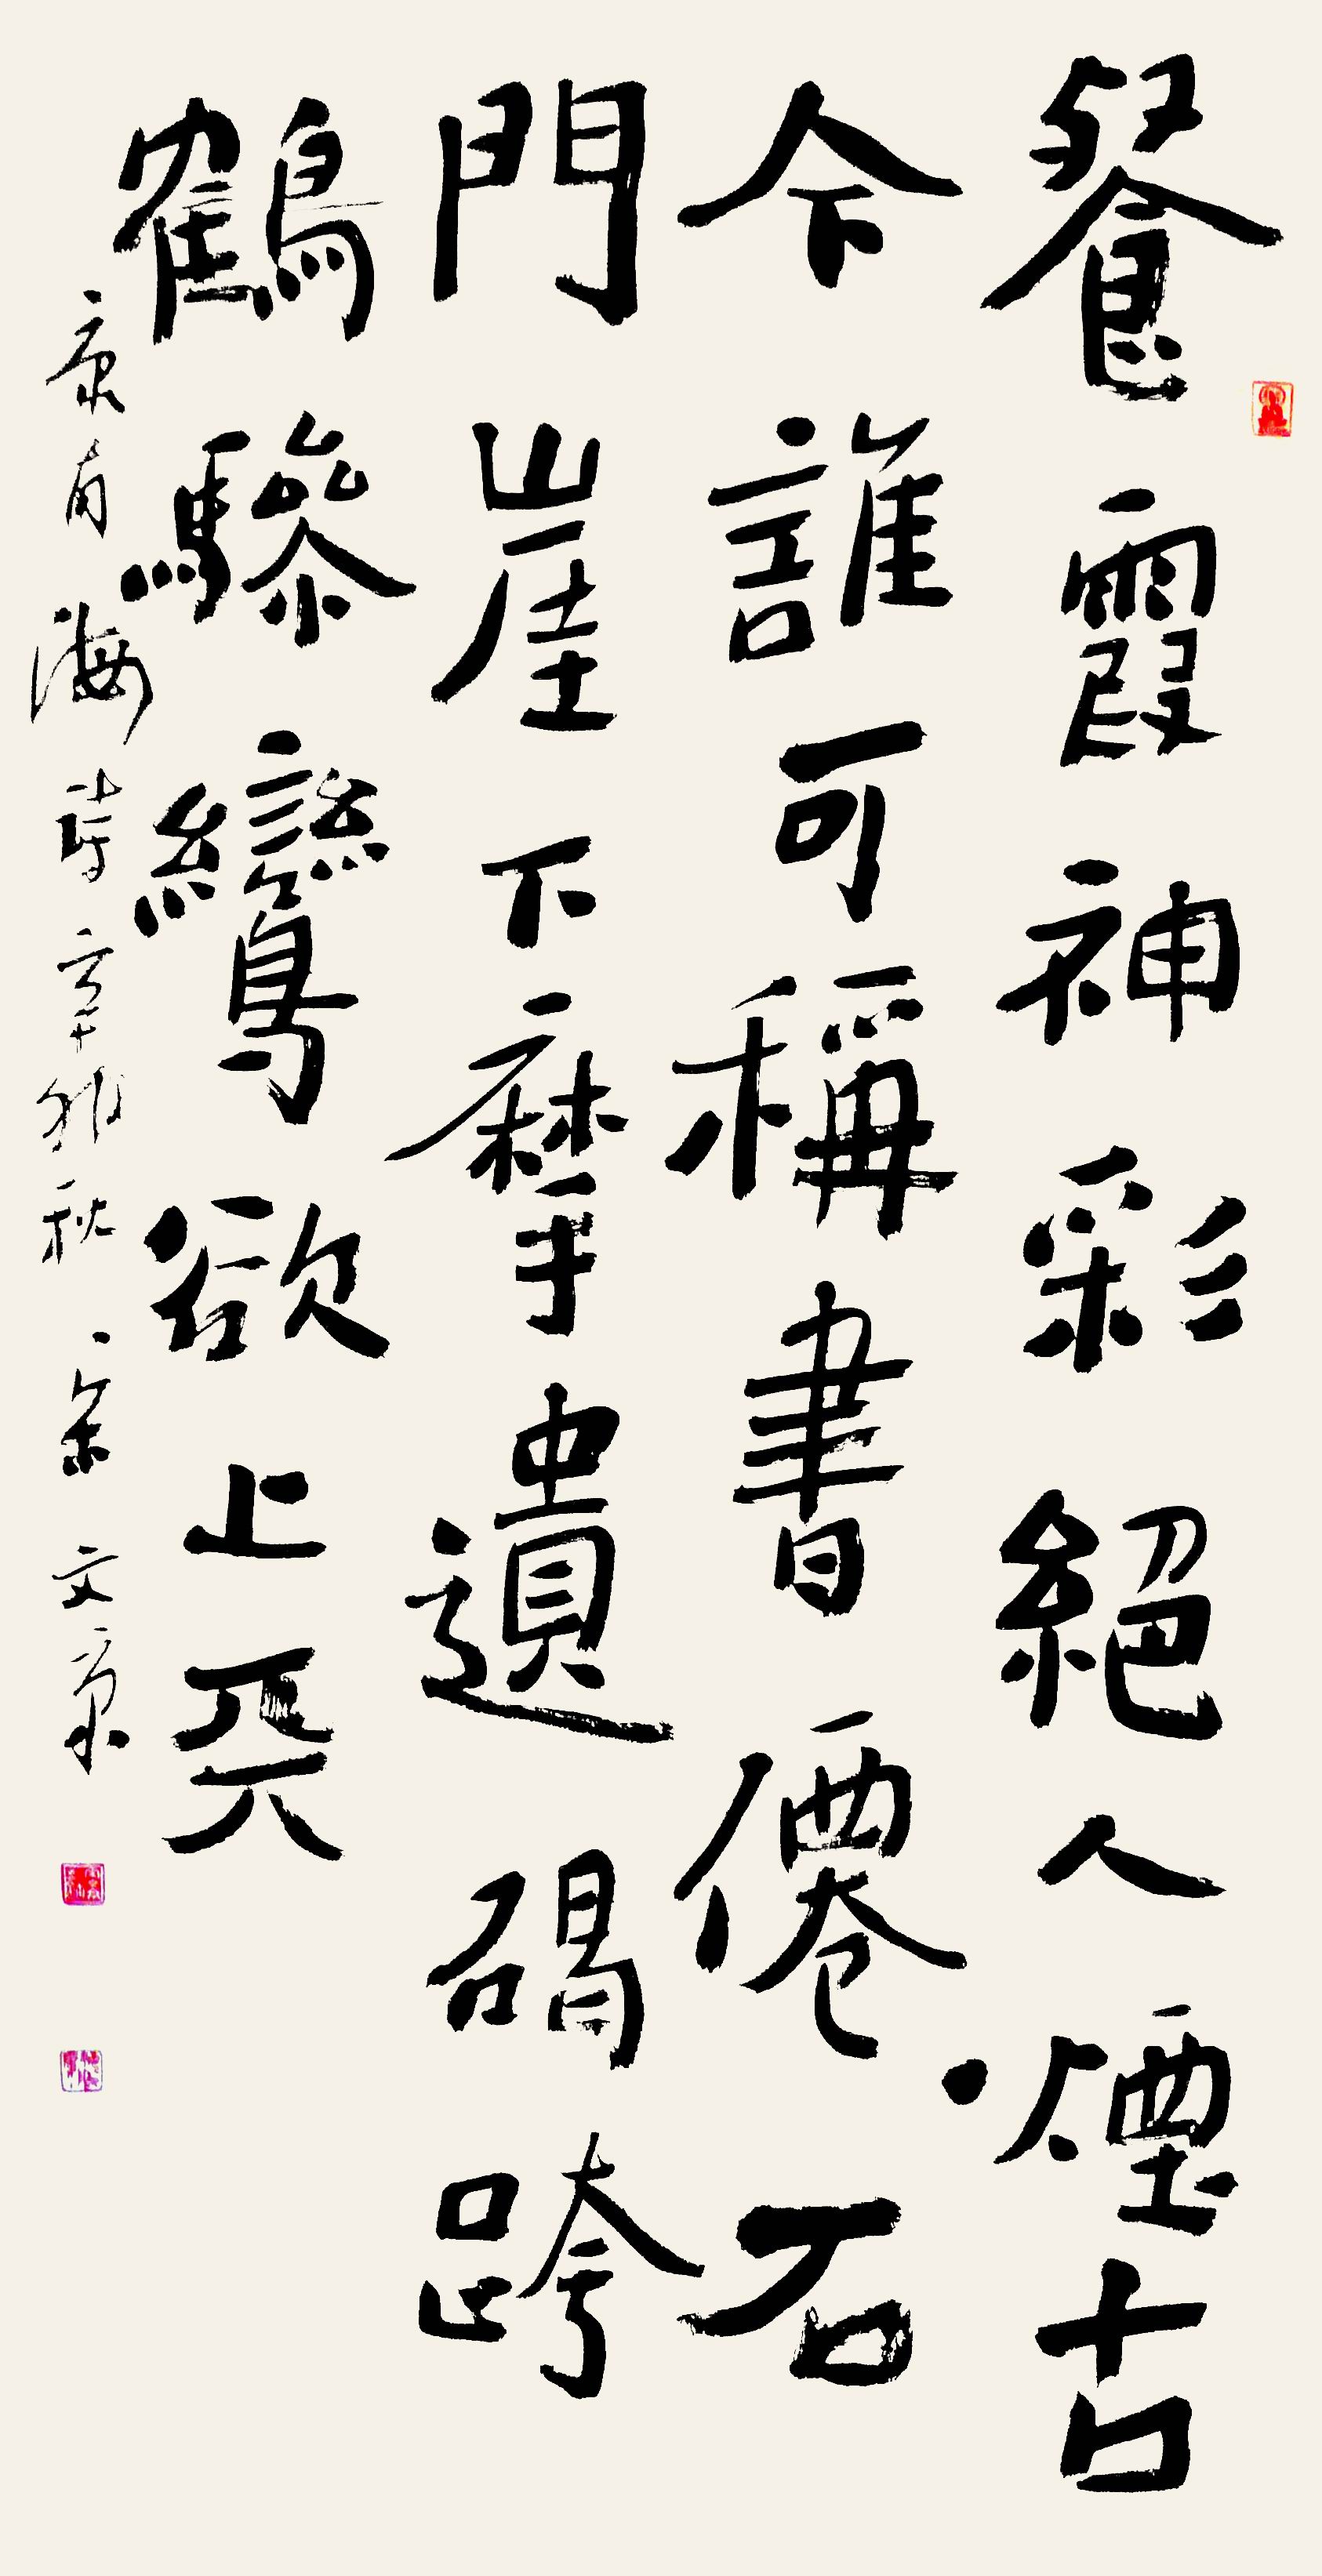 餐霞神彩絕人煙古
今誰可稱書僊石
門崖下摩遺碣跨
鶴驂鸞欲上天
康南海詩辛卯秋宗文景